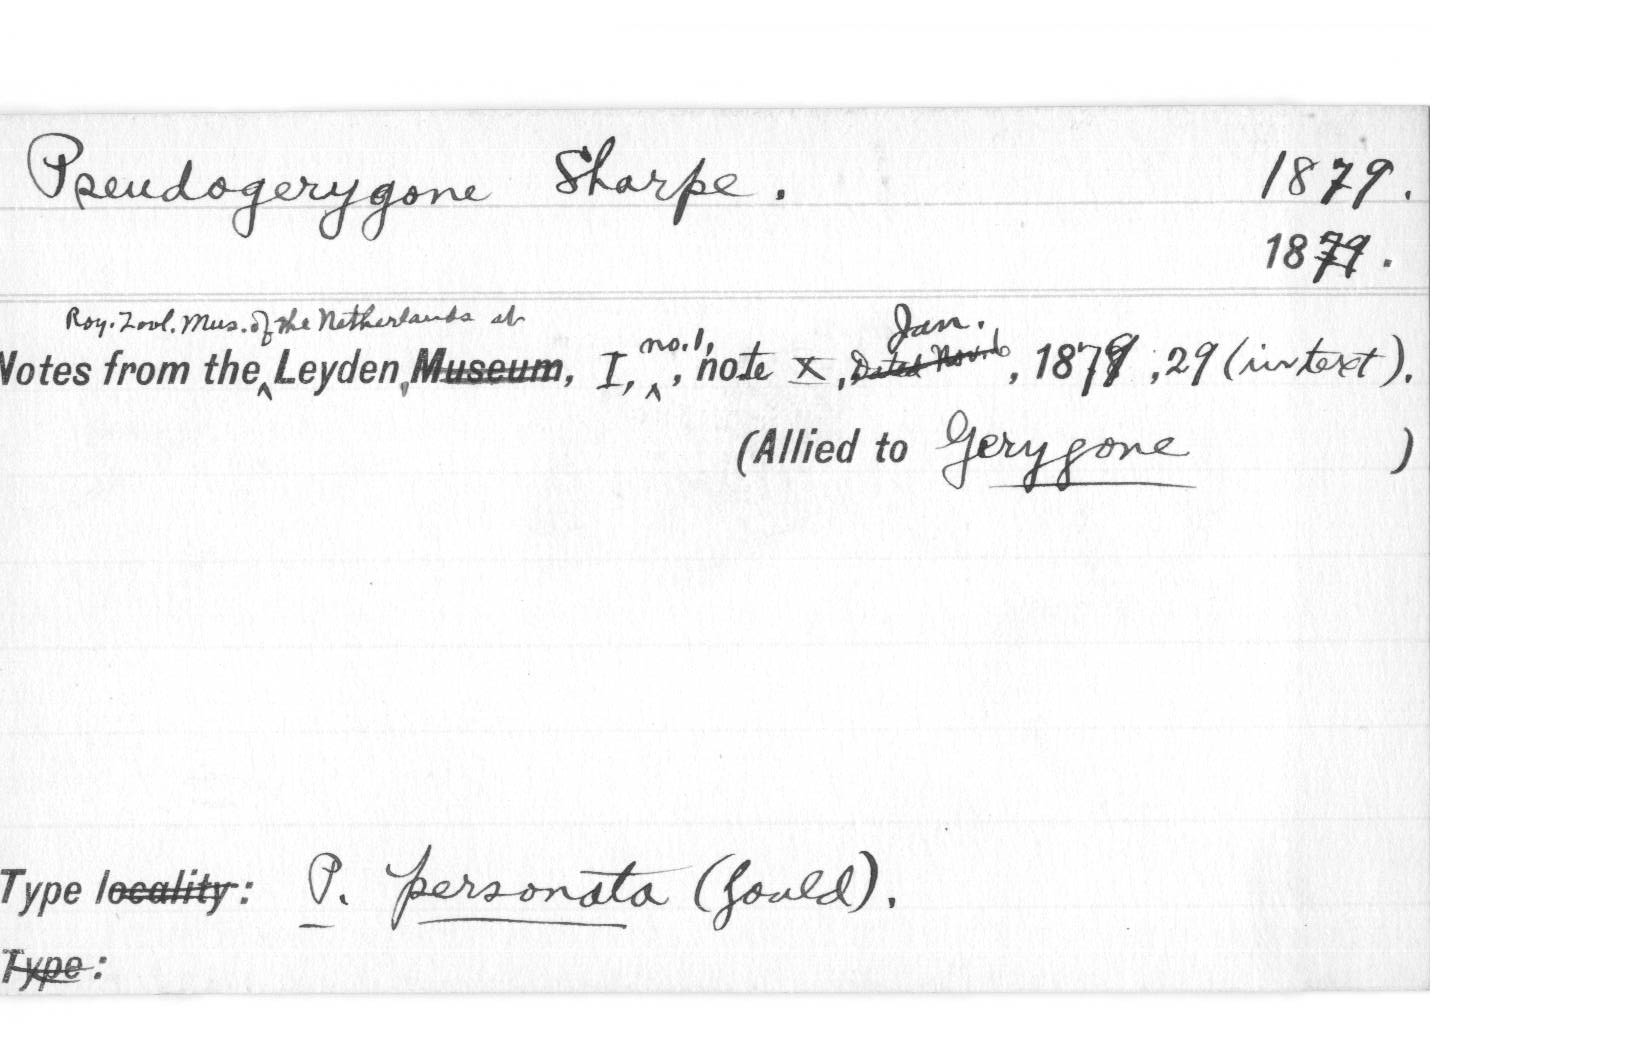 Pseudogerygone Sharpe. 1879.
1879.
Roy. Zool. Mus. of the Netherlands at
Notes from the Leyden Museum, I, no. 1, note X, Dated Jan. 1879, 29 (in text).
(Allied to Gerygone )
Type locality: P. personata (Gould).
Type: